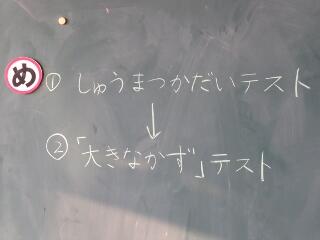 め ① しゅうまつかだいテスト
↓
② 「大きなかず」テスト